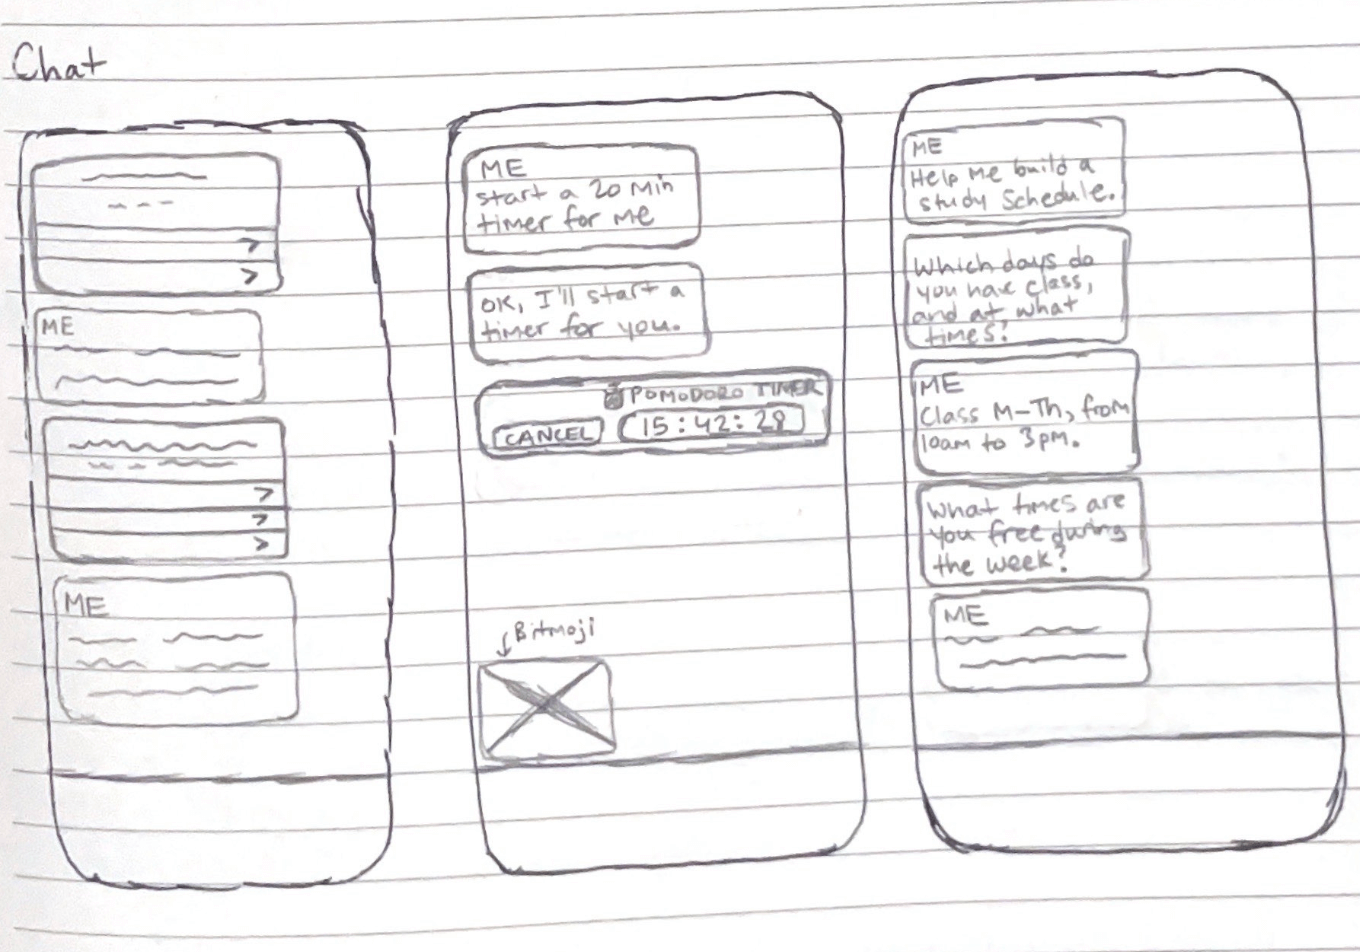 Chat
ME
ME
ME
start a 20 min
timer for me
OK, I'll start a
timer for you.
POMODORO TIMER
CANCEL
15:42:28
Bitmoji
ME
Help me build a
study schedule.
Which days do
you have class,
and at what
times?
ME
Class M-Th, from
10am to 3pm.
What times are
you free during
the week?
ME